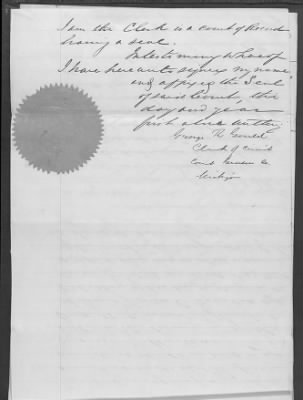 I am the Clerk is a court of Record
having a seal.
In testimony whereof
I have hereunto signed my name
and affixed the Seal
of said Court this
day and year
first above written
George R. Gould
Clerk of Circuit
Court
Michigan